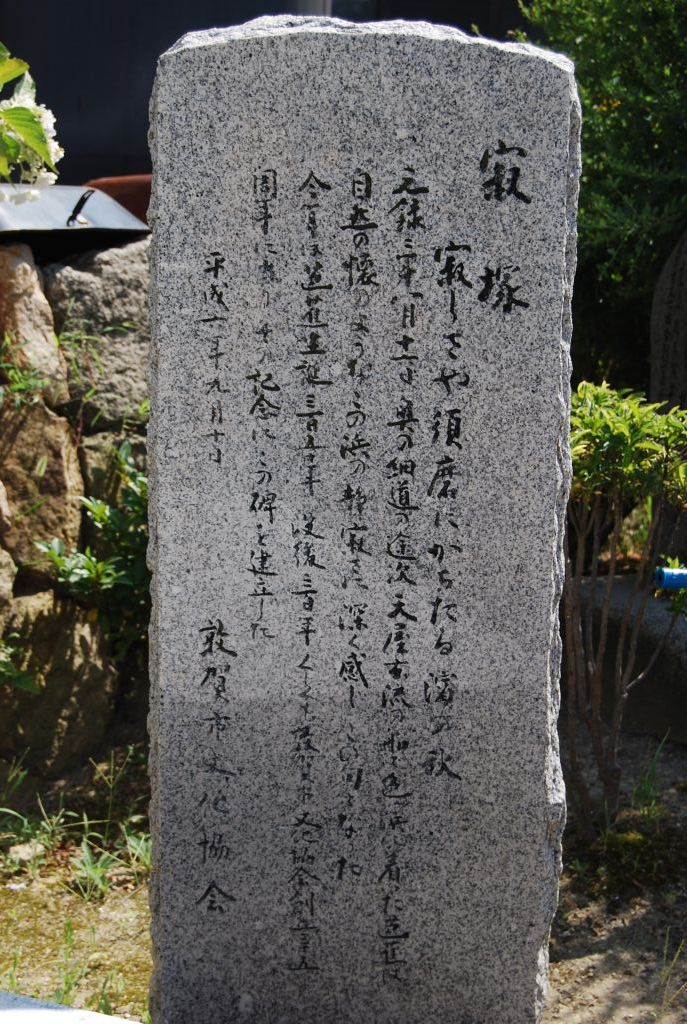 寂塚
寂しさや須磨にかちたる濱の秋
元録二年八月十六日奥の細道の途次天屋玄流の船で色浜に着いた芭蕉は
自然の懐のようなこの浜の静寂さに深く感じこの句となった
今年は芭蕉生誕三百五十年没後三百年くしくも敦賀市文化協会創立三五
周年に当りその記念にこの碑を建立した
平成六年九月十日
敦賀市文化協会